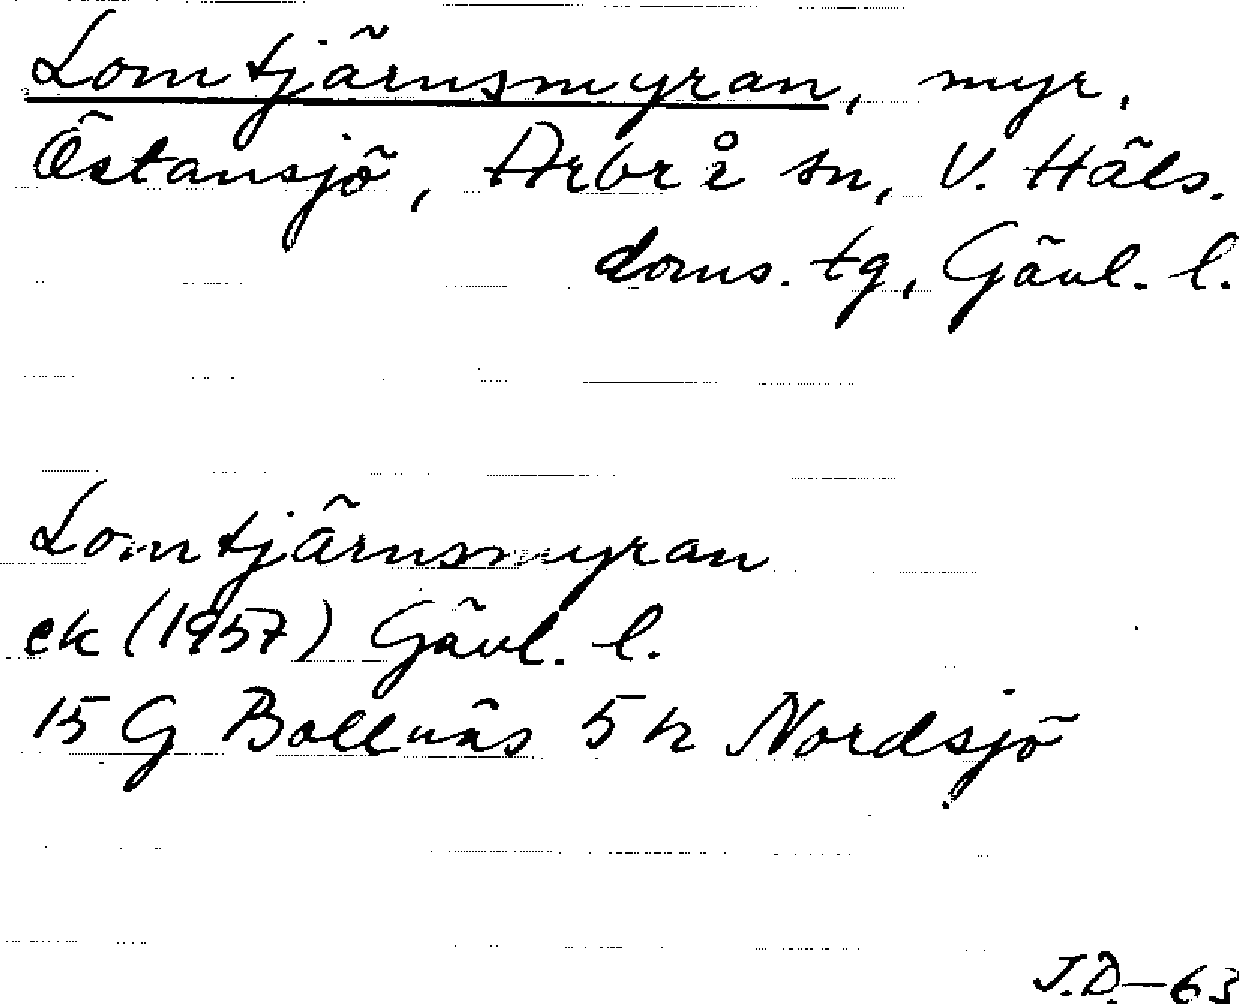 Lomtjärnsmyran, myr.
Östansjö, Arbrå sn, V. Häls.
doms. tg, Gävl. l.
Lomtjärnsmyran
ek (1957) Gävl. l.
15 G Bollnäs 5 h Nordsjö
J.D.-63